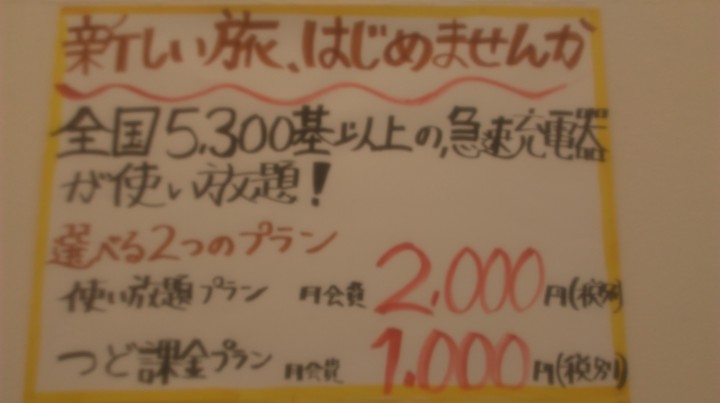 新しい旅、はじめませんか
全国5,300基以上の急速充電器
が使い放題!
選べる2つのプラン
使い放題プラン 月会費 2,000円(税別)
つど課金プラン 月会費 1,000円(税別)